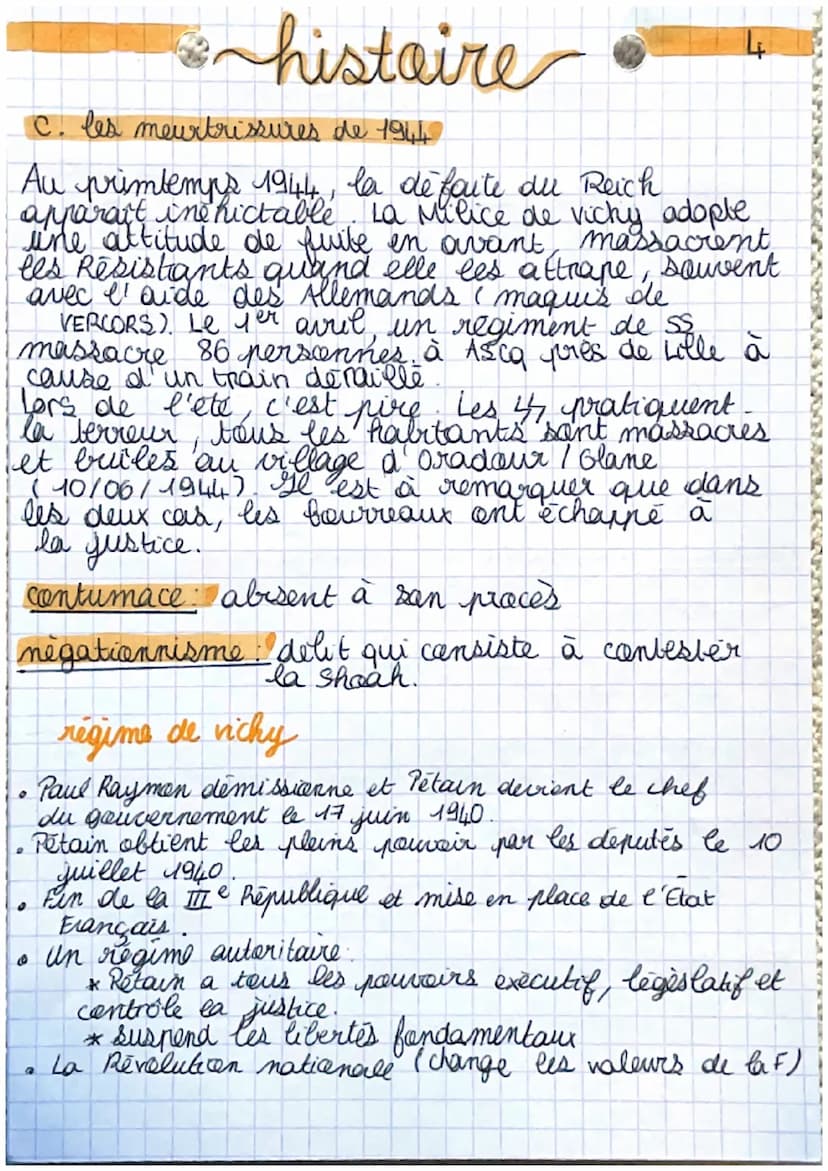 histoire
4
C. les meurtrissures de 1944
Au primtemps 1944, la défaite du Reich
apparaît inéhictable. La Milice de vichy adopte
une attitude de fuite en avant, massacrent
les Résistants quand elle les attrape, souvent
avec l'aide des Allemands (maquis de
VERCORS). Le 1er avril, un régiment de SS
massacre 86 personnes, à Ascq près de Lille à
cause d'un train déraillé.
Lors de l'été, c'est pire. Les SS pratiquent
la terreur, tous les habitants sont massacrés
et brulés au village d'Oradour / Glane
(10/06/1944). Il est à remarquer que dans
les deux cas, les bourreaux ont échappé à
la justice.
contumace : absent à son procès
négationnisme : délit qui consiste à contester
la Shoah.
régime de vichy
• Paul Raymon démissionne et Pétain devient le chef
du gouvernement le 17 juin 1940.
• Pétain obtient les pleins pouvoir par les députés le 10
juillet 1940.
• Fin de la IIIe République et mise en place de l'Etat
Français.
• Un régime autoritaire:
* Pétain a tous les pouvoirs exécutif, législatif et
contrôle la justice.
* suspend les libertés fondamentaux
• La Révolution nationale (change les valeurs de la F)